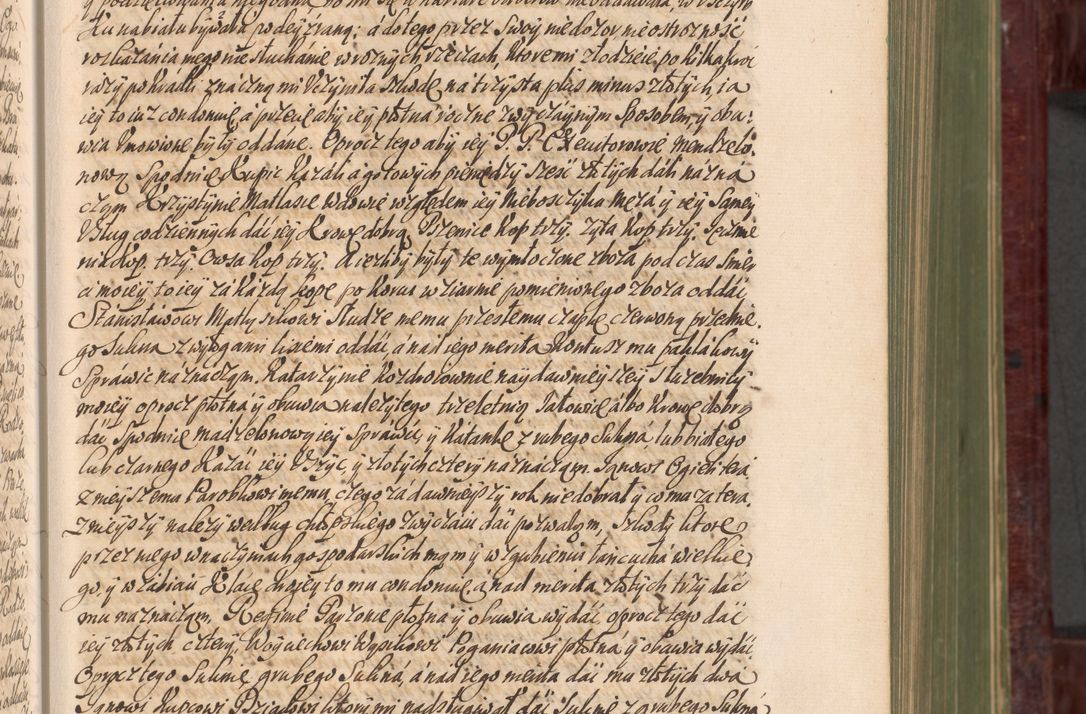 ku nabiału bywała podeyzraną; a do tego przez swoy niedozor nieostrożność
roskazania mego nie słuchanie w roznych rzeczach, ktore mi złodzieie po kilkakroć
razy pokradli znaczną mi uczyniła szkodę na trzysta plus minus złotych, ia
iey to iuz condonuię a przecie aby iey płotna roczne zwyczaynym sposobem y obu:
wia umowione były oddane. Oprocz tego aby iey P. P. Exekutorowie Mendzelo:
nową spodnicę kupic kazali a gotowych pieniędzy sześć złotych dali nazna
czam. Krzystynie Matlasce wdowie względem iey nieboszczyka męża y iey samey
usług codziennych dać iey krowę dobrą Pszenice kop trzy. Zyta kop trzy. Jęczmie
nia kop. trzy. Owsa kop trzy. A iezliby były te wymłocone zboża pod czas smier
ci moiey to iey za kazdą kopę po korcu w ziarnie pomienionego zboza oddać
Stanisławowi Matlyszkowi słudze memu przestemu czapkę czerwoną przednie.
go sukna z wyłogami lisiemi oddać, a nad iego merita kontusz mu paklakowy
sprawic naznaczam. Katarzynie Kozdrowownie naydawnieyszey służebnicy
moiey oprocz płotna y obuwia należytego trzeletnią Jałowicę albo krowę dobrą
dać spodnicę Madzelonową iey sprawić, y katankę z rubego sukna lub białego
lub czarnego kazać iey uszyc, y złotych cztery naznaczam.
znieyszemu Parobkowi memu, czego za dawnieyszy rok niedobrał y co mu za tera
znieyszy nalezy według chłopskiego zwyczaiu dać pozwalam, szkody ktore
przez niego w naczyniach gospodarskich mam y w zgubieniu łancucha wielkie
go, y w zabiciu klacze moiey to mu condonuię, a nad merita złotych trzy dać
mu naznaczam. Reginie Parzonce płotna y obuwia wydać, oprocz tego dać
iey złotych cztery. Woyciechowi Poganiaczowi płotna y obuwia wydać
Oprocz tego suknię grubego sukna, a nad iego merita dać mu złotych dwa
dać suknię z grubego sukna